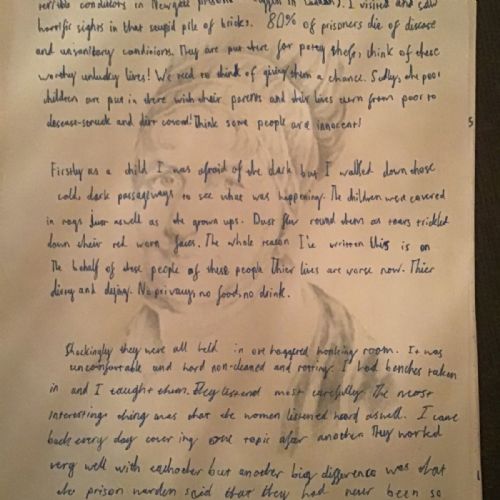 terrible conditions in Newgate prison. I visited and saw
horrific sights in that stupid pile of bricks. 80% of prisoners die of disease
and unsanitary conditions. They are put there for petty thefs, think of these
worthy unlucky lives! We need to think of giving them a chance. Sadly, the poor
children are put in there with their parents and their lives turn from poor to
desease-struck and dirt coverd! Think some people are innocent!
Firstly as a child I was afraid of the dark but I walked down those
cold, dark passageways to see what was happening. The children were covered
in rags just aswell as the grown ups. Dust flew round them as tears trickled
down their red worn faces. The whole reason I've written this is on
the behalf of these people of these people Thier lives are worse now. Thier
dirty and dying. No privacy, no food, no drink.
Shockingly they were all held in one haggered honking room. It was
uncomfortable and hard non-cleaned and rotting. I had benches taken
in and I taught them. They listened most carefully. The most
interesting thing was that the women listened heard aswell. I came
back every day covering one topic after another. They worked
very well with eachother but another big difference was that
the prison warden said that they had never been so